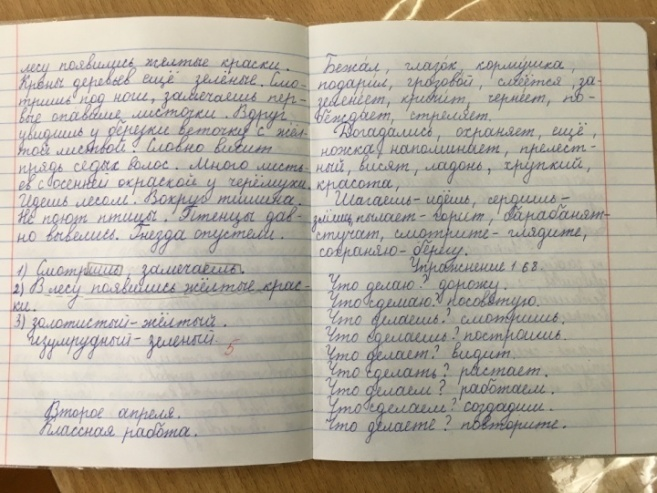 лесу появились желтые краски.
Кроны деревьев ещё зелёные. Смо-
тришь под ноги, замечаешь пер-
вые опавшие листочки. Вдруг
увидишь у берёзки веточку с жёл-
той листвой. Словно висит
прядь седых волос. Много листь-
ев с осенней окраской у черёмухи.
Идешь лесом. Вокруг тишина.
Не поют птицы. Птенцы дав-
но вывелись. Гнёзда опустели.
1) Смотришь, замечаешь.
2) В лесу появились жёлтые крас-
ки.
3) золотистый - жёлтый.
изумрудный - зеленый.
5
Второе апреля.
Классная работа.
Бежал, глазок, кормушка,
подарил, грозовой, смеётся, за-
зеленеет, кричит, чернеет, по-
беждает, стреляет.
Догадались, охраняет, ещё,
ножка, напоминает, прелест-
ный, висят, ладонь, хрупкий,
красота,
Шагаешь - идёшь, сердишь-
злишь, пылает - горит, барабанят-
стучат, смотрите - глядите,
сохраняю - берегу.
Упражнение 168.
Что делаю? дорожу.
Что сделаю? посоветую.
Что делаешь? смотришь.
Что сделаешь? построишь.
Что делает? видит.
Что сделать? растает.
Что делаем? работаем.
Что сделаем? создадим.
Что делаете? повторите.